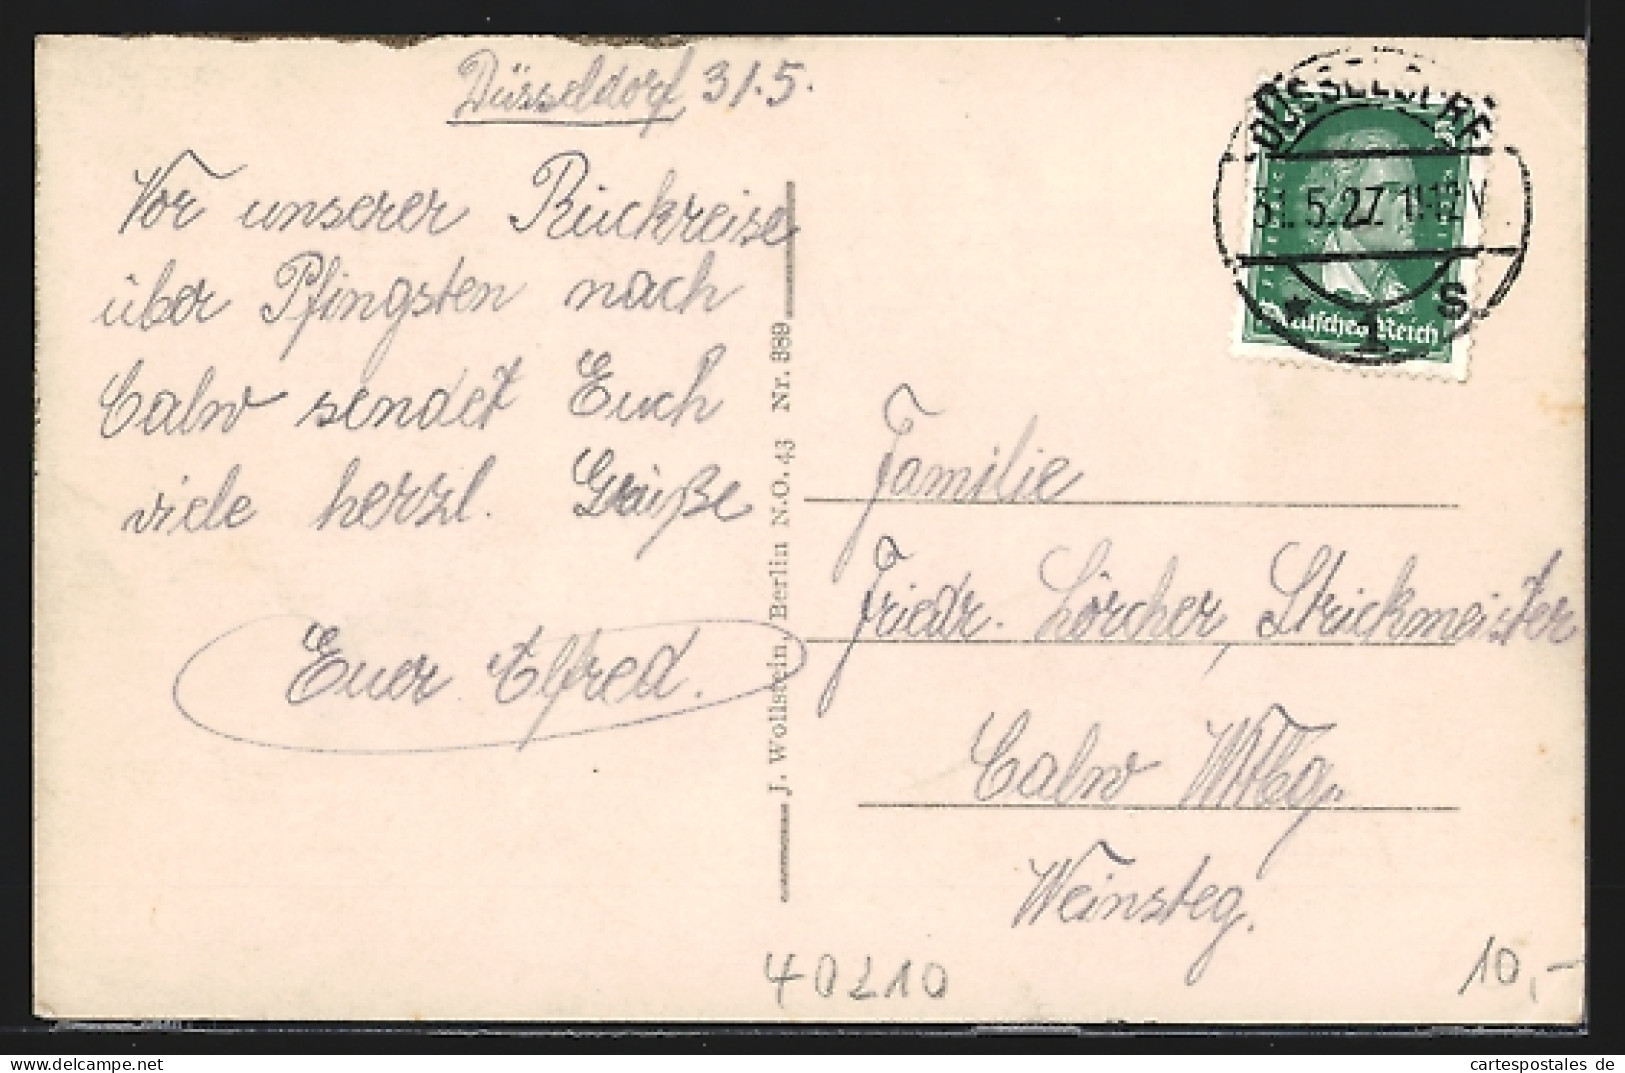 Düsseldorf 31.5.
Vor unserer Rückreise
über Pfingsten nach
Calw sendet Euch
viele herzl. Grüße
Euer Alfred.
J. Wollstein, Berlin N.O. 43 Nr. 389
DÜSSELDORF
31.5.27. 11-12V
* 1 s
Deutsches Reich
Familie
Friedr. Lörcher, Strickmeister
Calw Wttbg.
Weinsteg.
40210
10,-
delcampe.net
cartespostales de